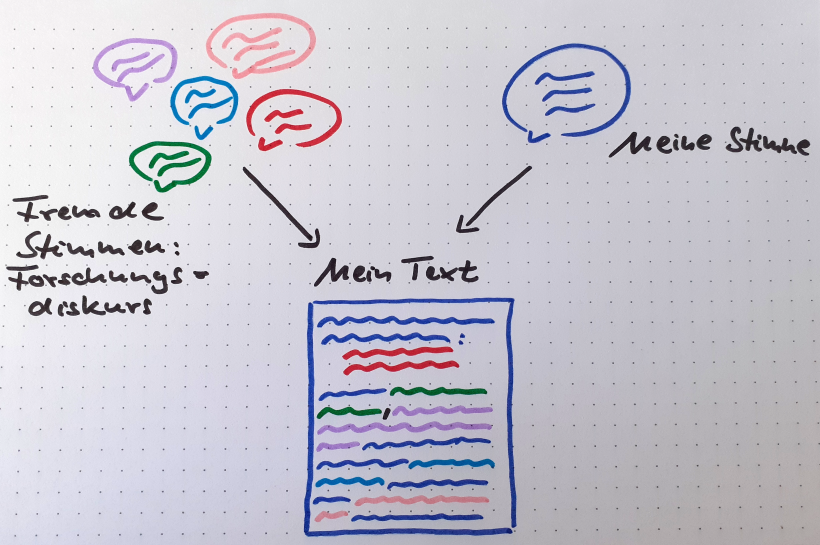 Meine Stimme
Fremde
Stimmen:
Forschungs-
diskurs
Mein Text